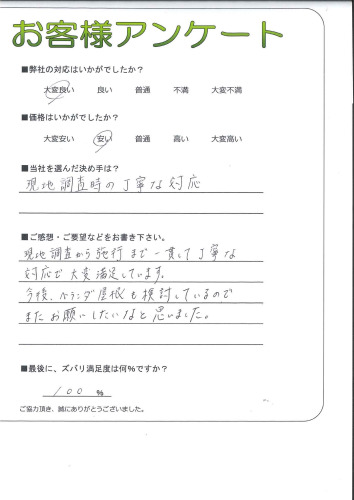 お客様アンケート
■弊社の対応はいかがでしたか？
大変良い 良い 普通 不満 大変不満
■価格はいかがでしたか？
大変安い 安い 普通 高い 大変高い
■当社を選んだ決め手は？
現地調査時の丁寧な対応
■ご感想・ご要望などをお書き下さい。
現地調査から施行まで一貫して丁寧な
対応で大変満足しています。
今後、ベランダ屋根も検討しているので
またお願いしたいなと思いました。
■最後に、ズバリ満足度は何％ですか？
100 ％
ご協力頂き、誠にありがとうございました。